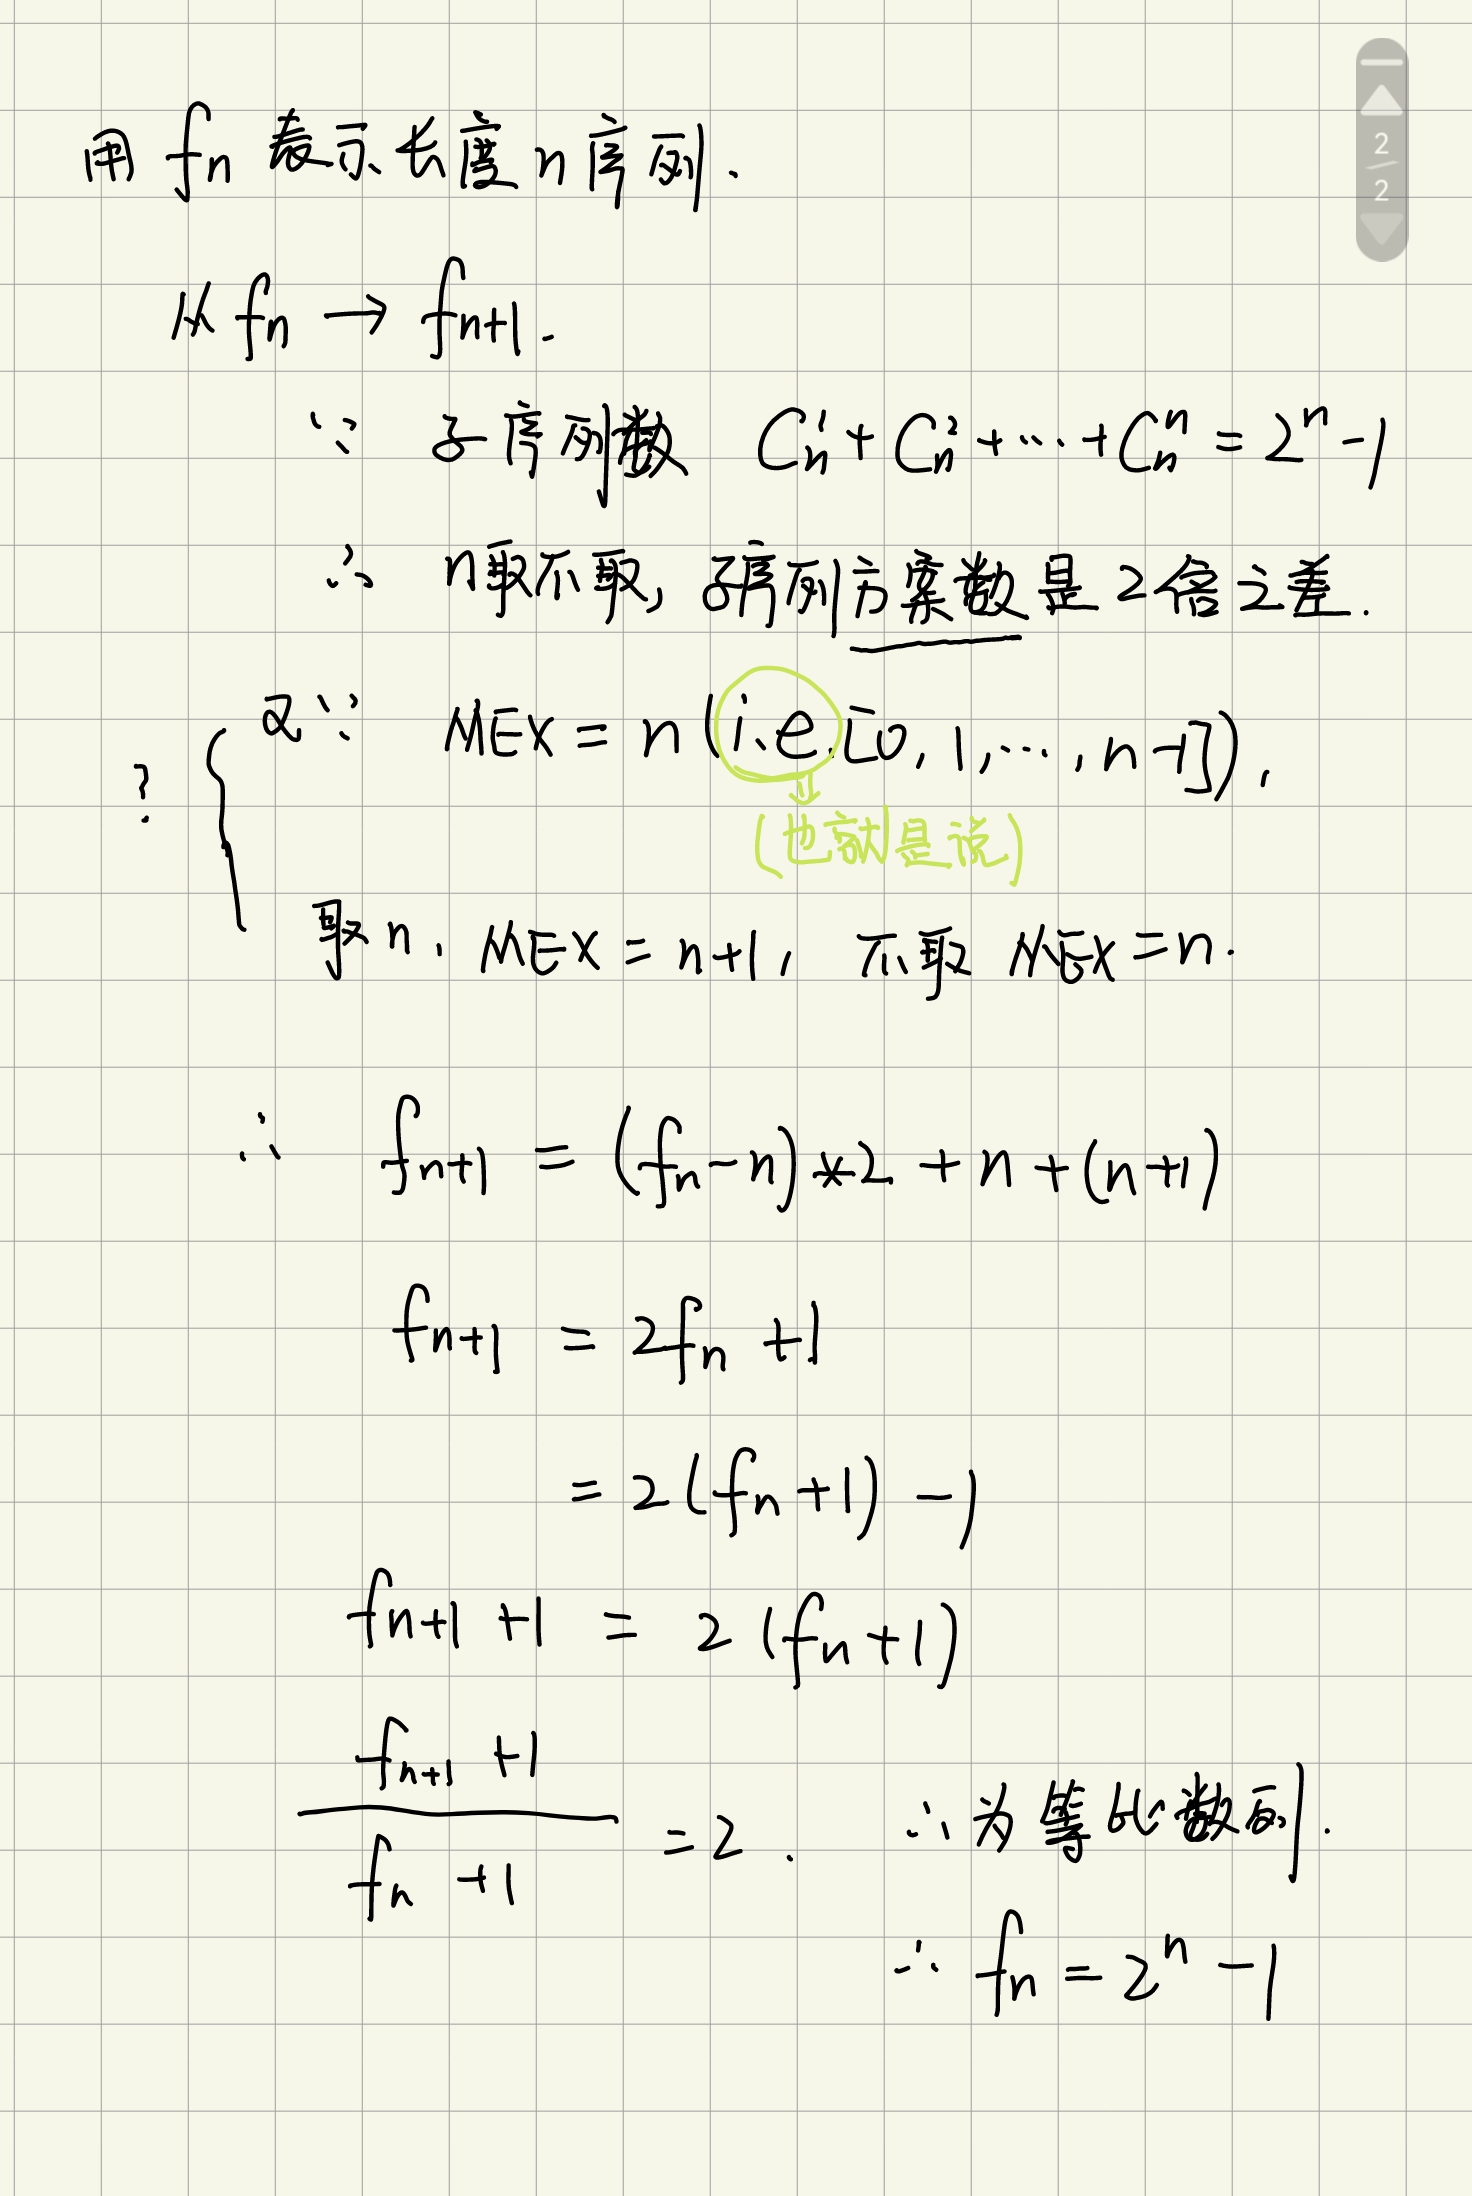 用 fn 表示长度 n 序列.
2
2
从 fn → fn+1.
∵ 子序列数 Cn¹ + Cn² + ⋯ + Cnⁿ = 2ⁿ - 1
∴ n取不取, 子序列方案数是2倍之差.
又∵ MEX = n (i.e. [0, 1, ⋯, n-1]),
?
(也就是说)
取n, MEX = n+1, 不取 MEX = n.
∴ fn+1 = (fn - n) * 2 + n + (n+1)
fn+1 = 2fn + 1
= 2(fn + 1) - 1
fn+1 + 1 = 2(fn + 1)
fn+1 + 1
fn + 1
= 2. ∴为等比数列.
∴ fn = 2ⁿ - 1